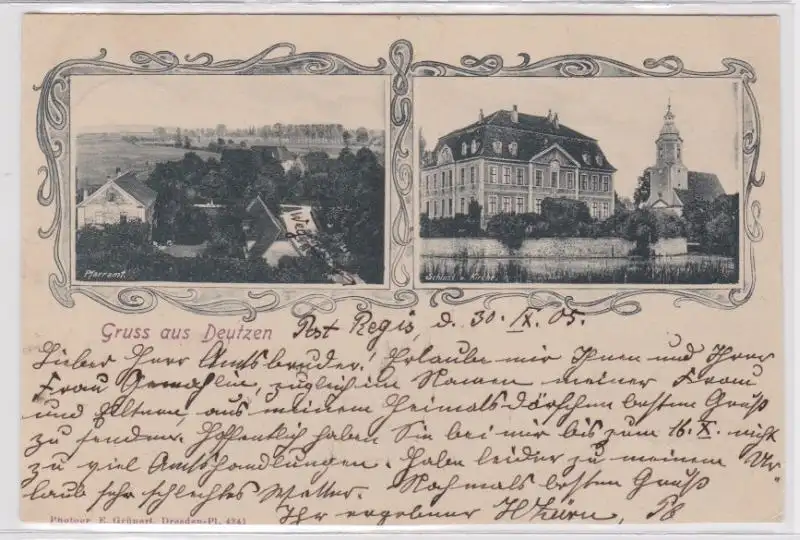 Pfarramt.
Weg
Schloss u. Kirche.
Gruss aus Deutzen Post Regis, d. 30. IX. 05.
Lieber Herr Amtsbruder! Erlaube mir Ihnen und Ihrer
Frau Gemahlin, zugleich im Namen meiner Frau
und Eltern, aus meinem Heimatsdörfchen besten Gruß
zu senden. Hoffentlich haben Sie bei mir bis zum 16. X. nicht
zu viel Amtshandlungen. Habe leider zu meinem Ur-
laub sehr schlechtes Wetter. Nochmals besten Gruß
Ihr ergebener
Photogr. E. Grünert, Dresden-Pl. 4241